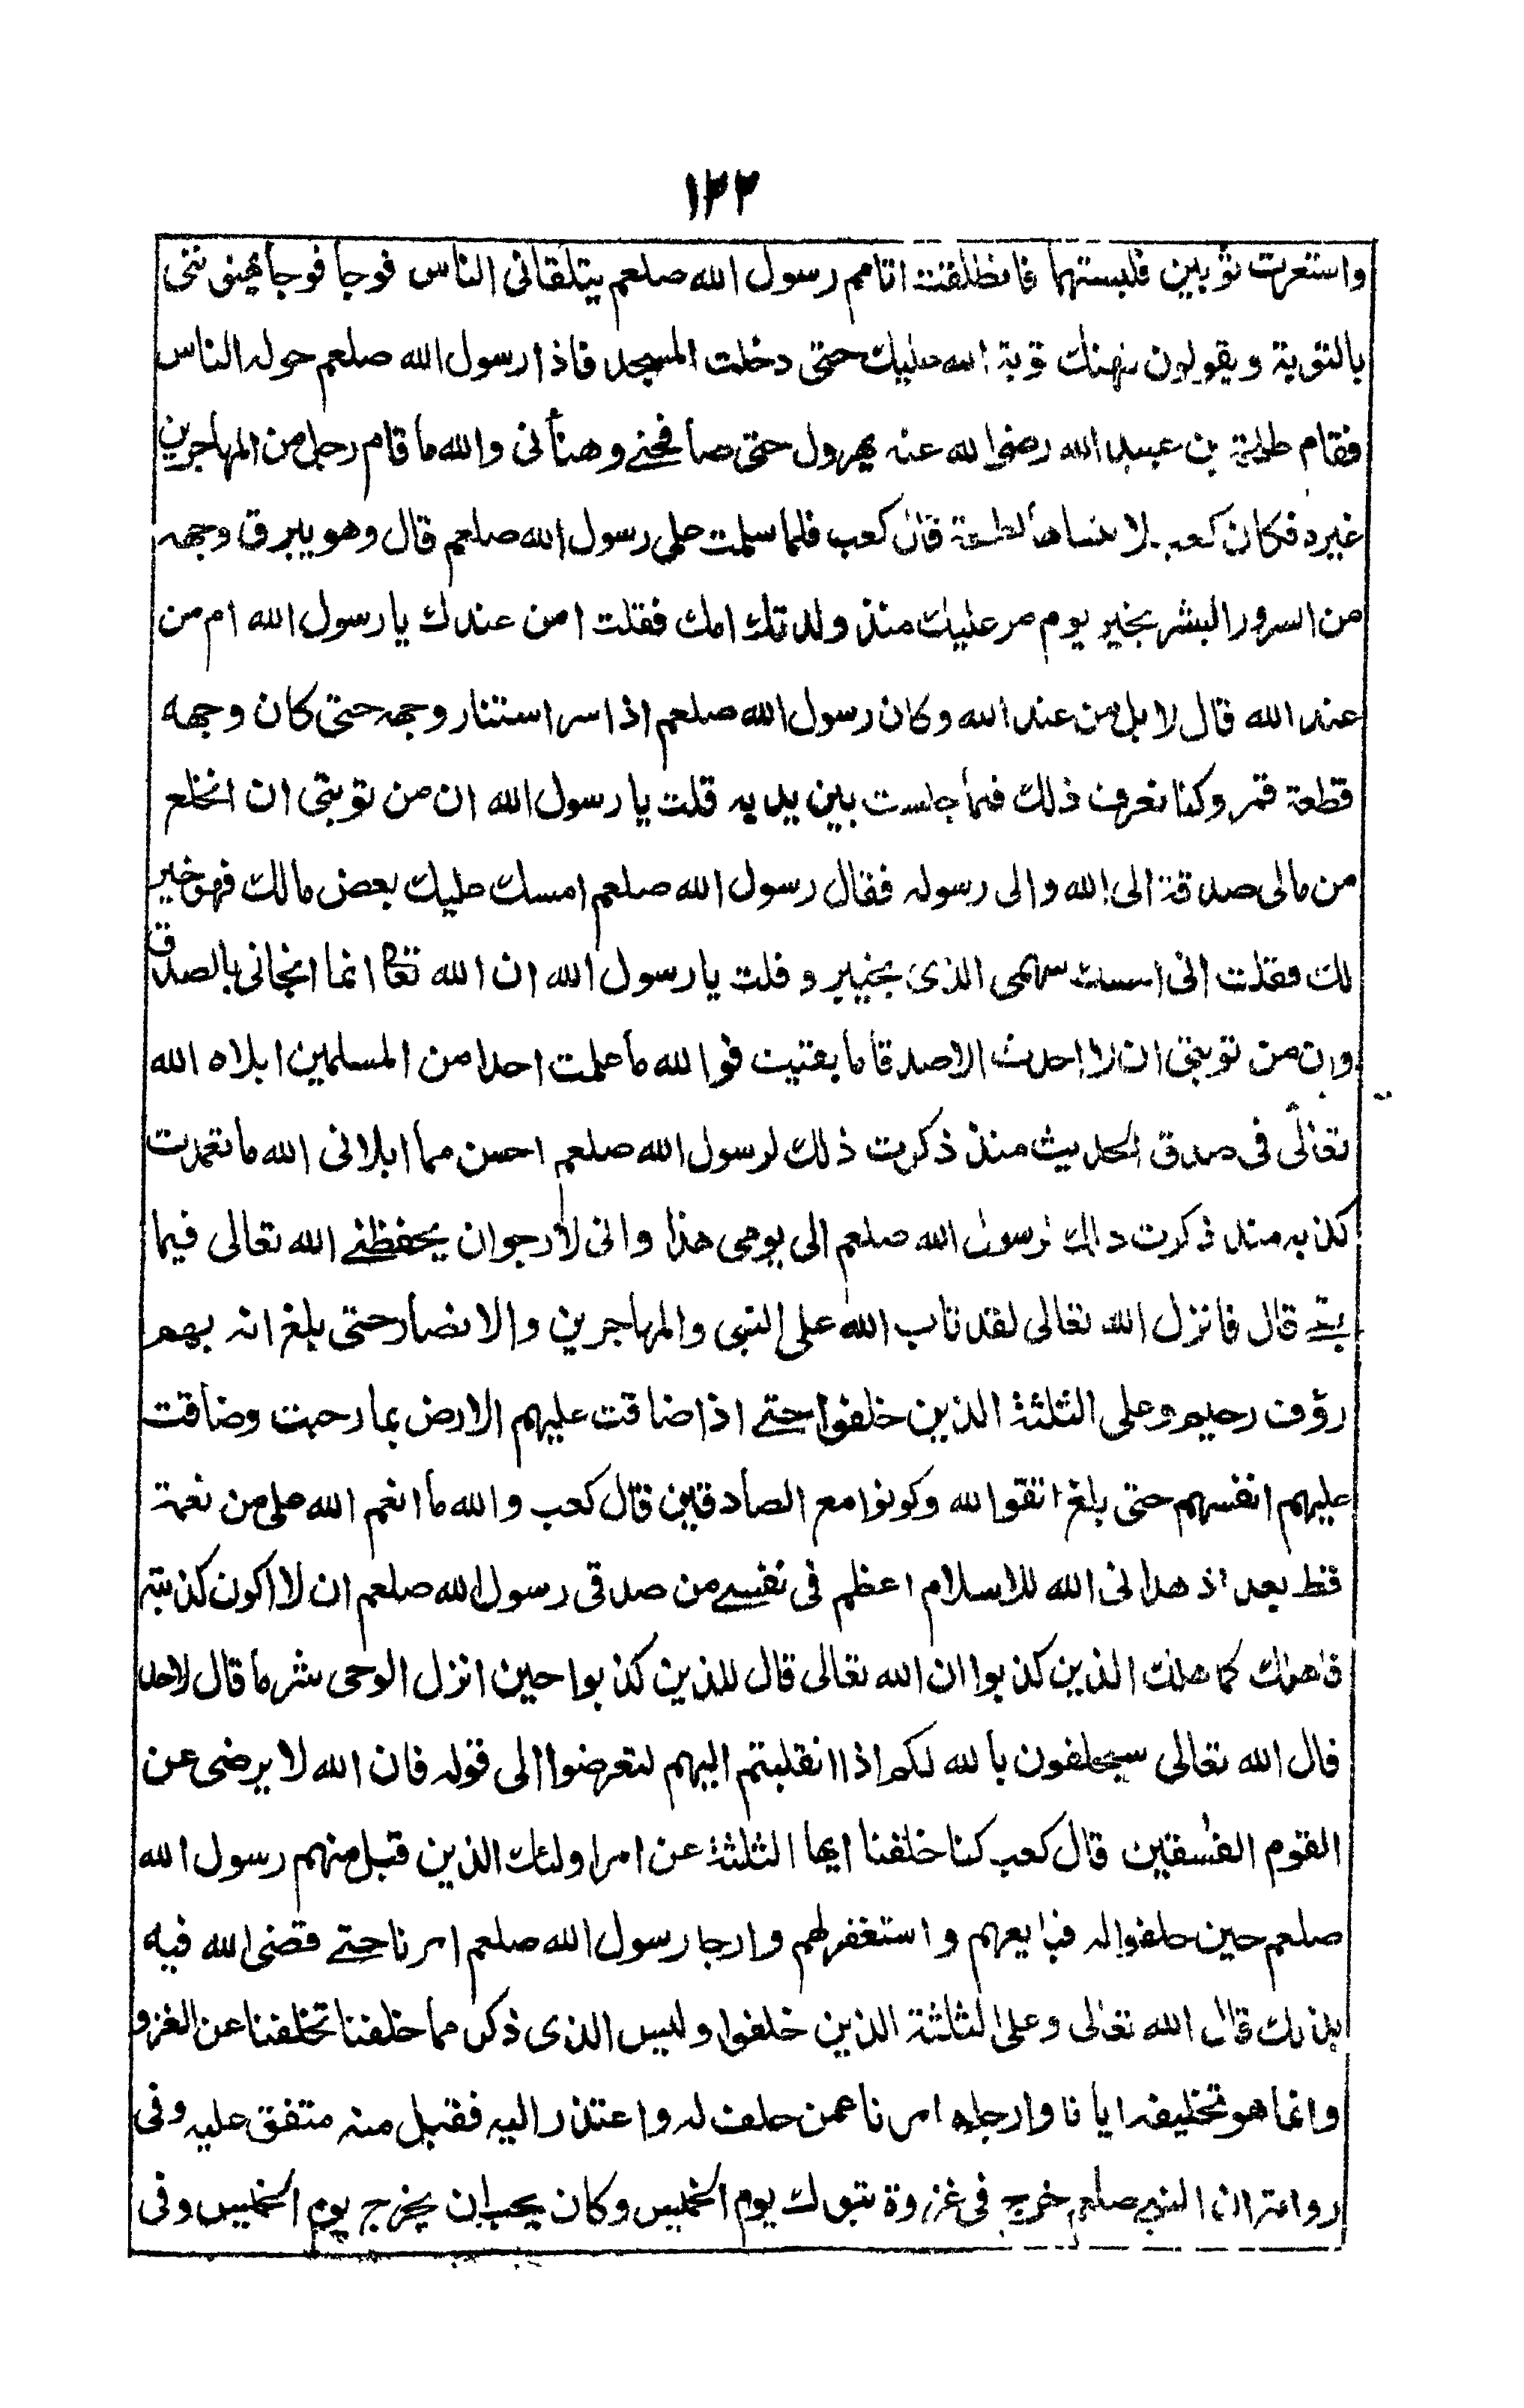 ١٢٢
واستعرت ثوبين فلبستهما فانطلقت اتامم رسول الله صلعم يتلقانى الناس فوجا فوجا يهنوننى
بالتوبة ويقولون نهنك توبة الله عليك حتى دخلت المسجد فاذا رسول الله صلعم حوله الناس
فقام طلحة بن عبيد الله رضى الله عنه يهرول حتى صافحنے وهنأنى والله ما قام رجل من المهاجرين
غيره فكان كعب لا ينساها لطلحة قال كعب فلما سلمت على رسول الله صلعم قال وهو يبرق وجهه
من السرور البشر بخير يوم مر عليك منذ ولدتك امك فقلت امن عندك يا رسول الله ام من
عند الله قال لا بل من عند الله وكان رسول الله صلعم اذا سر استنار وجهه حتى كان وجهه
قطعة قمر وكنا نعرف ذلك فلما جلست بين يديه قلت يا رسول الله ان من توبتى ان انخلع
من مالى صدقة الى الله والى رسوله فقال رسول الله صلعم امسك عليك بعض مالك فهو خير
لك فقلت انى امسك سهمى الذى بخيبر وقلت يا رسول الله ان الله تعا انما انجانى بالصدق
وان من توبتى ان لا احدث الا صدقا ما بقيت فوالله ما علمت احدا من المسلمين ابلاه الله
تعالى فى صدق الحديث منذ ذكرت ذلك لرسول الله صلعم احسن مما ابلانى الله ما تعمدت
كذبه منذ ذكرت ذلك لرسول الله صلعم الى يومى هذا وانى لارجو ان يحفظنے الله تعالى فيما
بقے قال فانزل الله تعالى لقد تاب الله على النبى والمهاجرين والانصار حتى بلغ انه بهم
رؤف رحيم وعلى الثلثة الذين خلفوا حتے اذا ضاقت عليهم الارض بما رحبت وضاقت
عليهم انفسهم حتى بلغ اتقوا لله وكونوا مع الصادقين قال كعب والله ما انعم الله على من نعمة
قط بعد اذ هدانى الله للاسلام اعظم فى نفسے من صدقى رسول الله صلعم ان لا اكون كذبته
فاهلك كما هلك الذين كذبوا ان الله تعالى قال للذين كذبوا حين انزل الوحى شر ما قال لاحد
قال الله تعالى سيحلفون بالله لكم اذا انقلبتم اليهم لتعرضوا الى قوله فان الله لا يرضى عن
القوم الفسقين قال كعب كنا خلفنا ايها الثلثة عن امر اولئك الذين قبل منهم رسول الله
صلعم حين حلفوا له فبايعهم واستغفر لهم وارجا رسول الله صلعم امرنا حتے قضى الله فيه
بذلك قال الله تعالى وعلى الثلثة الذين خلفوا وليس الذى ذكر مما خلفنا تخلفنا عن الغزو
وانما هو تخليفه ايانا وارجاه امرنا عمن حلف له واعتذر اليه فقبل منه متفق عليه وفى
رواية ان النبى صلعم خرج فى غزوة تبوك يوم الخميس وكان يحب ان يخرج يوم الخميس وفى